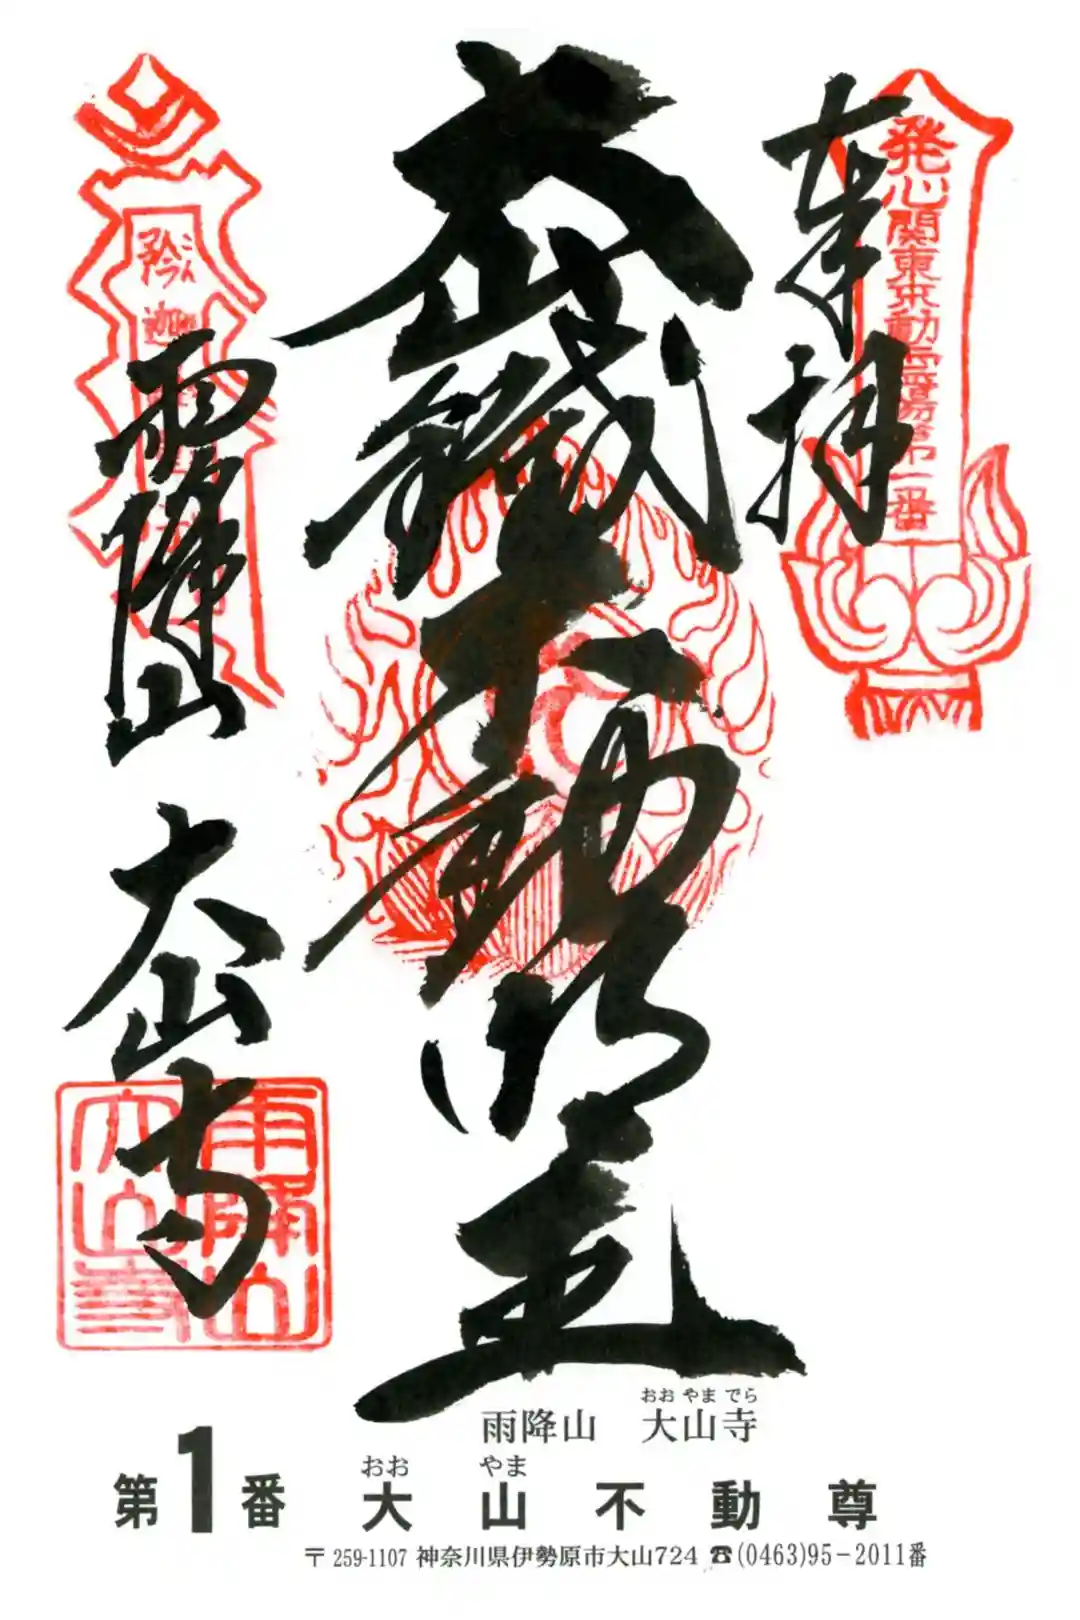 奉拝
発心関東不動霊場第一番
大山鐵不動明王
矜迦
こん
雨降山 大山寺
雨降山
大山寺
雨降山 大山寺
おお やま でら
第1番 大山不動尊
おお やま
〒259-1107 神奈川県伊勢原市大山724 ☎(0463)95-2011番